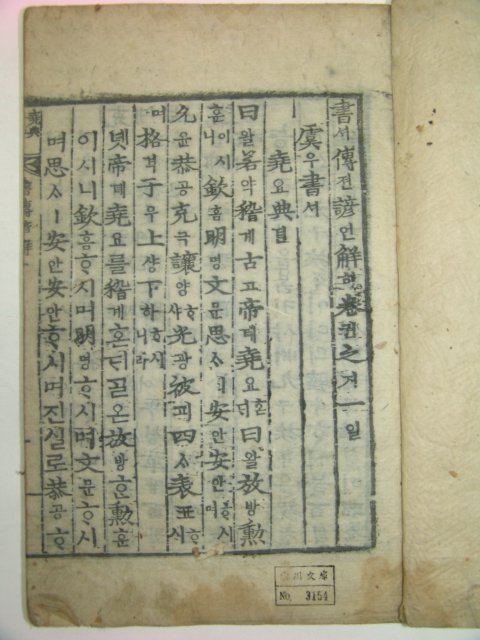 書셔傳젼諺언解ᄒᆡ卷권之지一일
虞우書셔
堯요典뎐
曰왈若약稽계古고帝뎨堯요ᄒᆞᆫ더曰왈放방勳
훈이시니欽흠明명文문思ᄉᆞㅣ安안安안ᄒᆞ시며
允윤恭공克극讓양ᄒᆞ샤光광被피四ᄉᆞ表표ᄒᆞ시
며格격于우上샹下하ᄒᆞ시니라
녯帝뎨堯요를稽계ᄒᆞᆫ더곧온放방ᄒᆞᆫ勳훈
이시니欽흠ᄒᆞ시며明명ᄒᆞ시며文문ᄒᆞ시
며思ᄉᆞㅣ安안安안ᄒᆞ시며진실로恭공ᄒᆞ
堯典
書傳諺解
川文庫
No. 3154